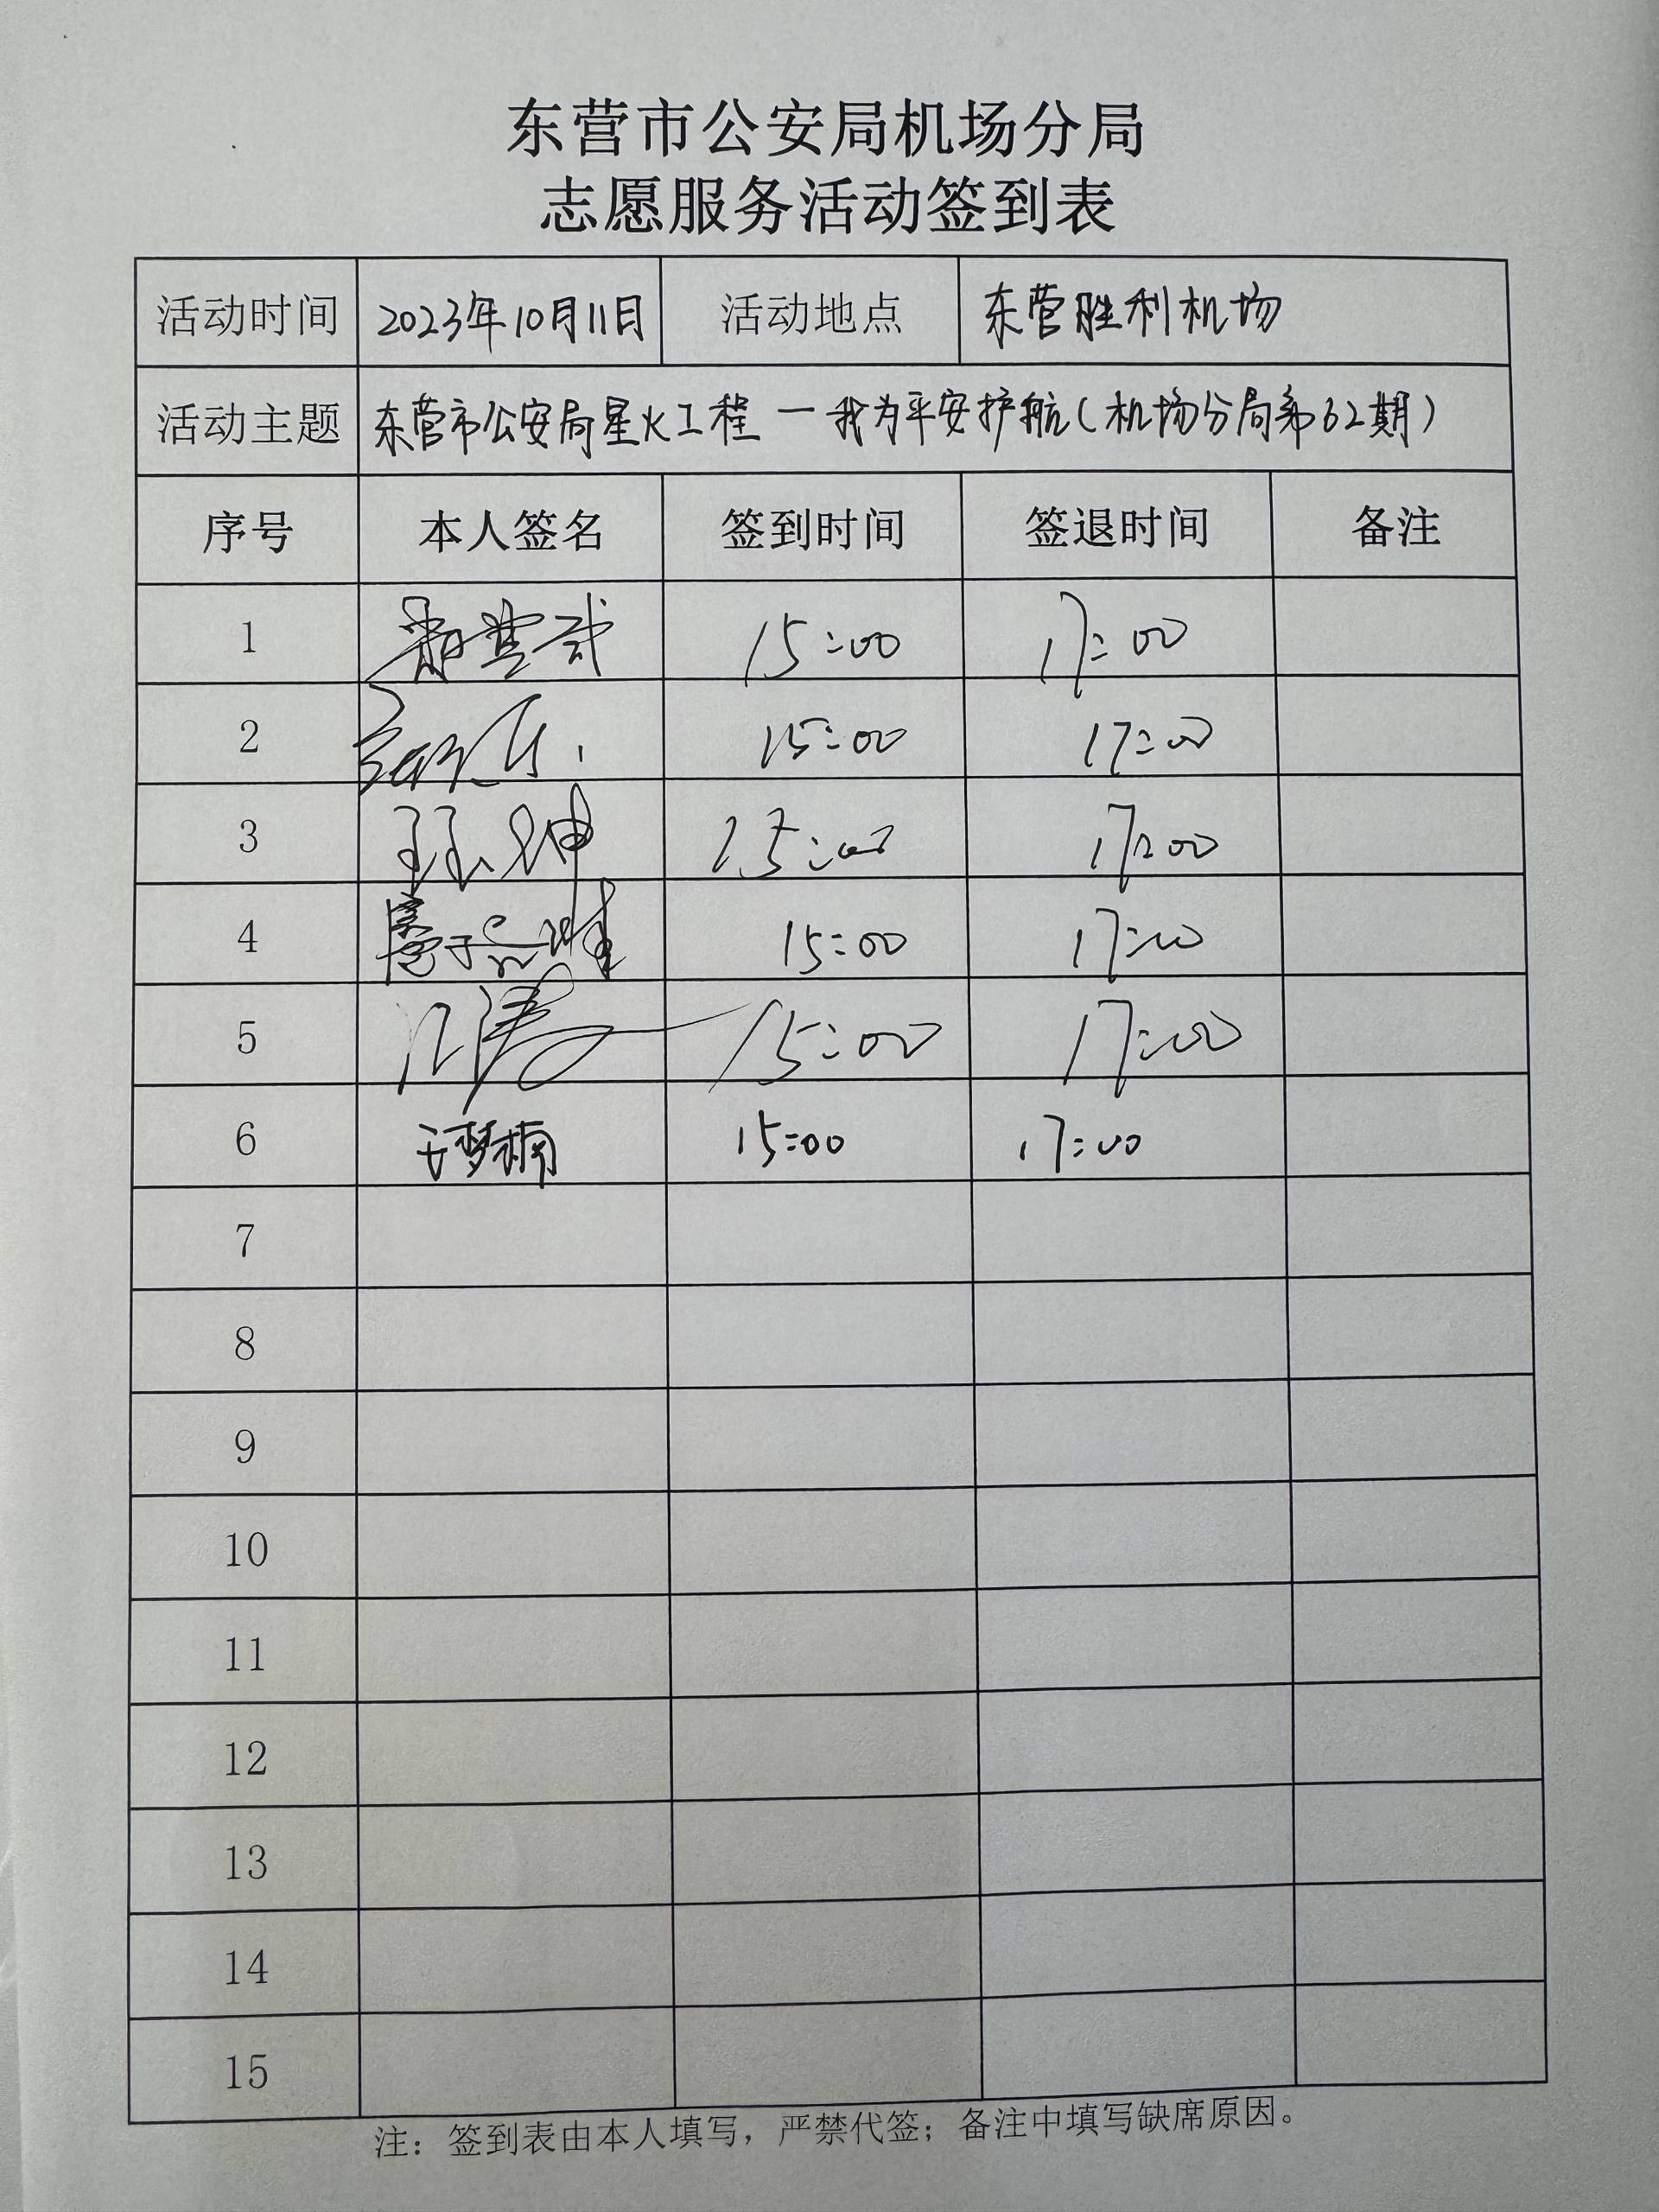 东营市公安局机场分局
志愿服务活动签到表
活动时间 2023年10月11日 活动地点 东营胜利机场
活动主题 东营市公安局星火工程 一 我为平安护航(机场分局第62期)
序号 本人签名 签到时间 签退时间 备注
1 15:00 17:00
2 15:00 17:00
3 孙坤 15:00 17:00
4 15:00 17:00
5 15:00 17:00
6 于梦楠 15:00 17:00
7
8
9
10
11
12
13
14
15
注：签到表由本人填写，严禁代签；备注中填写缺席原因。